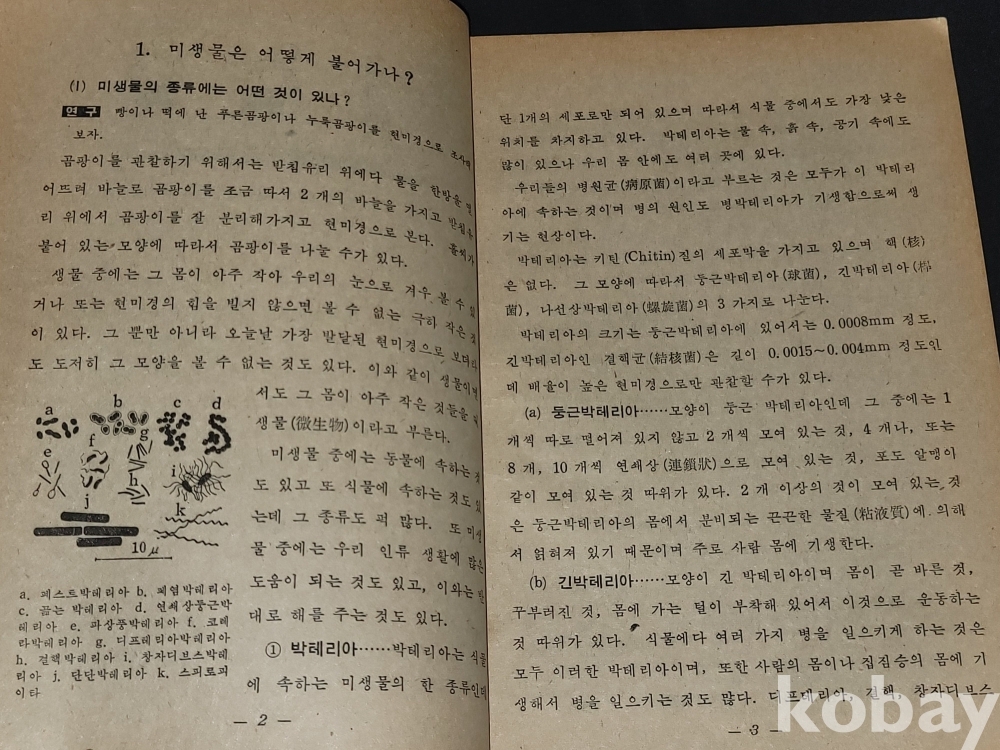 1. 미생물은 어떻게 불어가나?
(1) 미생물의 종류에는 어떤 것이 있나?
연구 빵이나 떡에 난 푸른곰팡이나 누룩곰팡이를 현미경으로 조사해
보자.
곰팡이를 관찰하기 위해서는 받침유리 위에다 물을 한방울 떨
어뜨려 바늘로 곰팡이를 조금 따서 2 개의 바늘을 가지고 받침유
리 위에서 곰팡이를 잘 분리해가지고 현미경으로 본다. 홀씨가
붙어 있는 모양에 따라서 곰팡이를 나눌 수가 있다.
생물 중에는 그 몸이 아주 작아 우리의 눈으로 겨우 볼 수 있
거나 또는 현미경의 힘을 빌지 않으면 볼 수 없는 극히 작은 것
이 있다. 그 뿐만 아니라 오늘날 가장 발달된 현미경으로 보더라
도 도저히 그 모양을 볼 수 없는 것도 있다. 이와 같이 생물이면
서도 그 몸이 아주 작은 것들을
생물(微生物)이라고 부른다.
미생물 중에는 동물에 속하는 것
도 있고 또 식물에 속하는 것도 있
는데 그 종류도 퍽 많다. 또 미생
물 중에는 우리 인류 생활에 많은
도움이 되는 것도 있고, 이와는 반
대로 해를 주는 것도 있다.
① 박테리아……박테리아는 식물
에 속하는 미생물의 한 종류인데
a b c d
e f g
h i
j k
10 μ
a. 페스트박테리아 b. 폐염박테리아
c. 곪는 박테리아 d. 연쇄상둥근박
테리아 e. 파상풍박테리아 f. 코레
라박테리아 g. 디프테리아박테리아
h. 결핵박테리아 i. 창자디브스박테
리아 j. 단단박테리아 k. 스피로피
이타
— 2 —
단 1개의 세포로만 되어 있으며 따라서 식물 중에서도 가장 낮은
위치를 차지하고 있다. 박테리아는 물 속, 흙 속, 공기 속에도
많이 있으나 우리 몸 안에도 여러 곳에 있다.
우리들의 병원균(病原菌)이라고 부르는 것은 모두가 이 박테리
아에 속하는 것이며 병의 원인도 병박테리아가 기생함으로써 생
기는 현상이다.
박테리아는 키틴(Chitin)질의 세포막을 가지고 있으며 핵(核)
은 없다. 그 모양에 따라서 둥근박테리아(球菌), 긴박테리아(桿
菌), 나선상박테리아(螺旋菌)의 3 가지로 나눈다.
박테리아의 크기는 둥근박테리아에 있어서는 0.0008mm 정도,
긴박테리아인 결핵균(結核菌)은 길이 0.0015~0.004mm 정도인
데 배율이 높은 현미경으로만 관찰할 수가 있다.
(a) 둥근박테리아……모양이 둥근 박테리아인데 그 중에는 1
개씩 따로 떨어져 있지 않고 2 개씩 모여 있는 것, 4 개나, 또는
8 개, 10 개씩 연쇄상(連鎖狀)으로 모여 있는 것, 포도 알맹이
같이 모여 있는 것 따위가 있다. 2 개 이상의 것이 모여 있는 것
은 둥근박테리아의 몸에서 분비되는 끈끈한 물질(粘液質)에 의해
서 얽혀져 있기 때문이며 주로 사람 몸에 기생한다.
(b) 긴박테리아……모양이 긴 박테리아이며 몸이 곧 바른 것,
꾸부러진 것, 몸에 가는 털이 부착해 있어서 이것으로 운동하는
것 따위가 있다. 식물에다 여러 가지 병을 일으키게 하는 것은
모두 이러한 박테리아이며, 또한 사람의 몸이나 집짐승의 몸에 기
생해서 병을 일으키는 것도 많다. 디프테리아, 결핵, 창자디브스
— 3 —
kobay